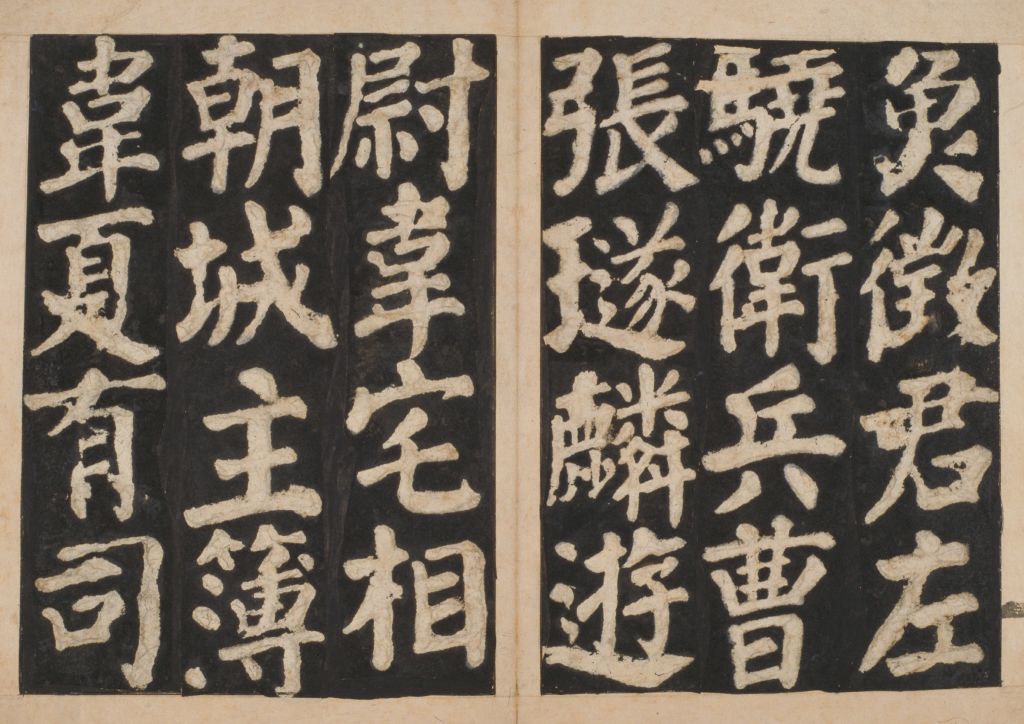 魚徵君左
驍衛兵曹
張璲麟遊
尉韋宅相
朝城主簿
韋夏有司